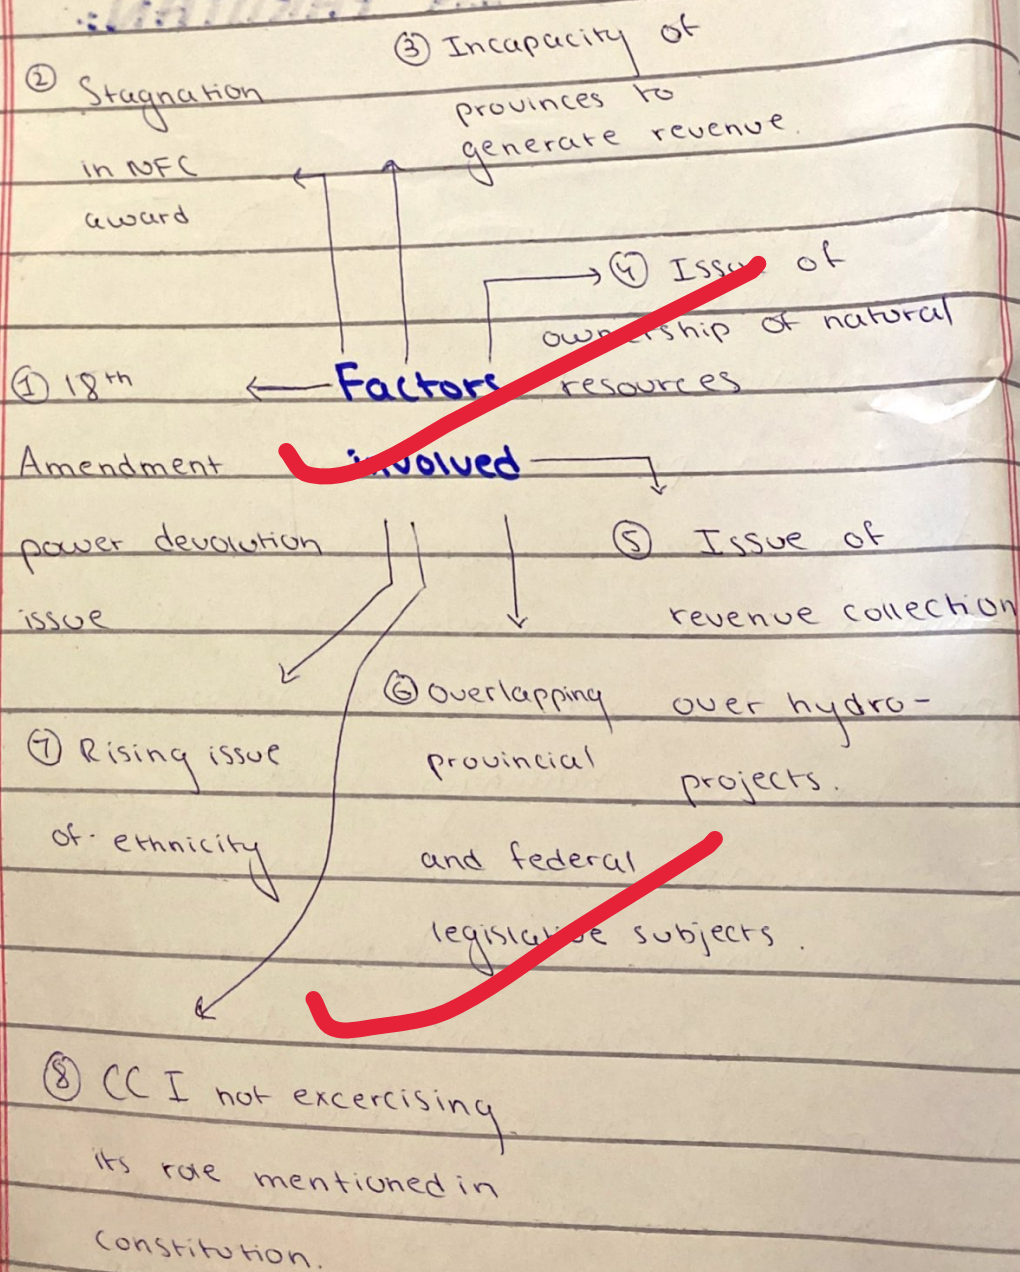 ② Stagnation
in NFC
award
③ Incapacity of
provinces to
generate revenue.
④ Issue of
ownership of natural
resources
Factors
involved
① 18th
Amendment
power devolution
issue
⑤ Issue of
revenue collection
over hydro-
projects.
⑥ Overlapping
provincial
and federal
legislative subjects.
⑦ Rising issue
of ethnicity
⑧ CCI not excercising
its role mentioned in
constitution.